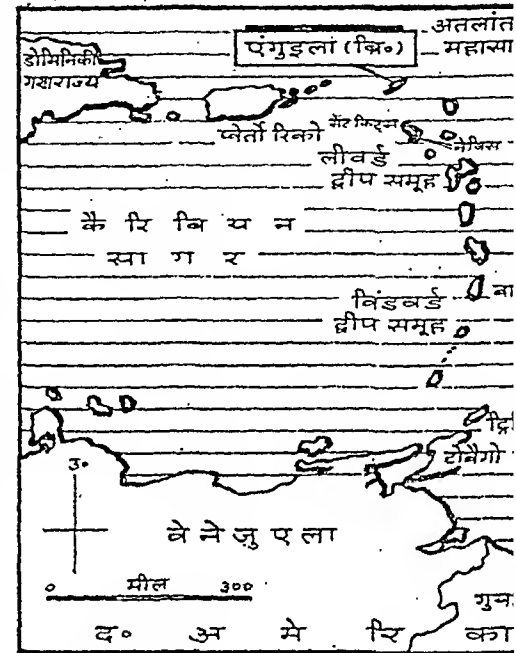 अतलांत
महासा
पंगुइलां (ब्रि॰)
डोमिनिकी
गराराज्य
प्वेर्तो रिको
सेंट किट्स
नेविस
लीवर्ड
द्वीप समूह
कैरिबियन
सागर
विंडवर्ड
द्वीप समूह
बा
ट्रि
टोबैगो
उ॰
वेनेजुएला
० मील ३००
गुय
द॰ अमेरिका